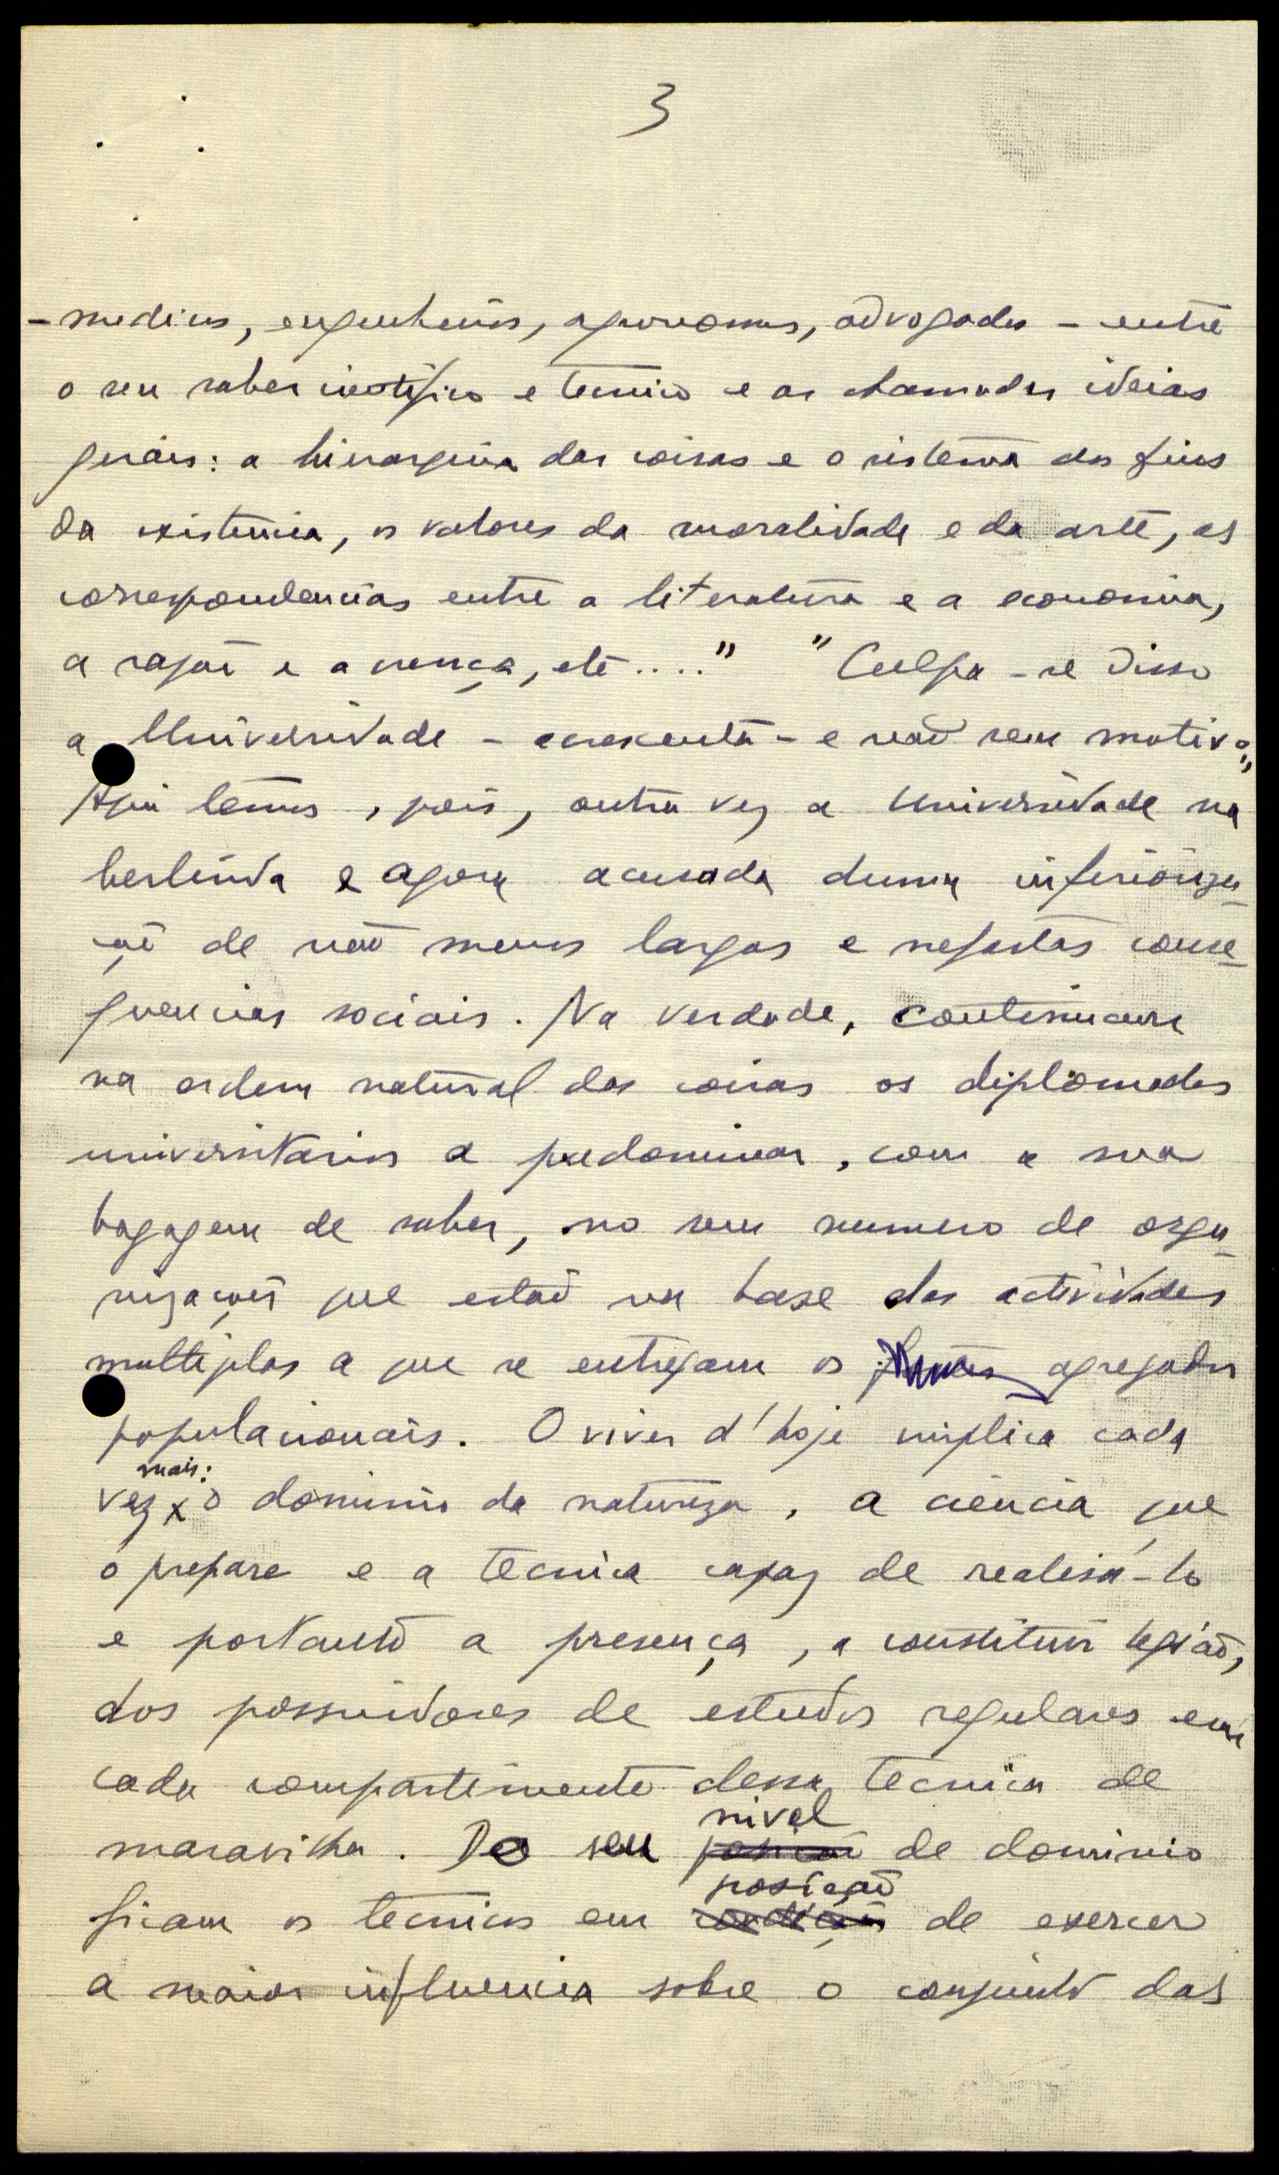 3
- medicos, engenheiros, agronomos, advogados - entre
o seu saber cientifico e tecnico e as chamadas ideias
gerais: a hierarquia das coisas e o sistema dos fins
da existencia, os valores da moralidade e da arte, as
correspondencias entre a literatura e a economia,
a razão e a crença, etc...." "Culpa-se disso
a Universidade - acrescenta - e não sem motivo"
Aqui temos, pois, outra vez a Universidade na
berlinda e agora acusada duma inferioriza-
ção de não menos largas e nefastas conse-
quencias sociais. Na verdade, continuam
na ordem natural das coisas os diplomados
universitarios a predominar, com a sua
bagagem de saber, no sem numero de orga-
nizações que estão na base das actividades
multiplas a que se entregam os agregados
populacionais. O viver d'hoje implica cada
mais:
vez x o dominio da natureza, a ciencia que
o prepare e a tecnica capaz de realisá-lo
e portanto a presença, a constituir legião,
dos possuidores de estudos regulares em
cada compartimento dessa tecnica de
nivel
maravilha. Do seu posição de dominio
posição
ficam os tecnicos em condições de exercer
a maior influencia sobre o conjunto das